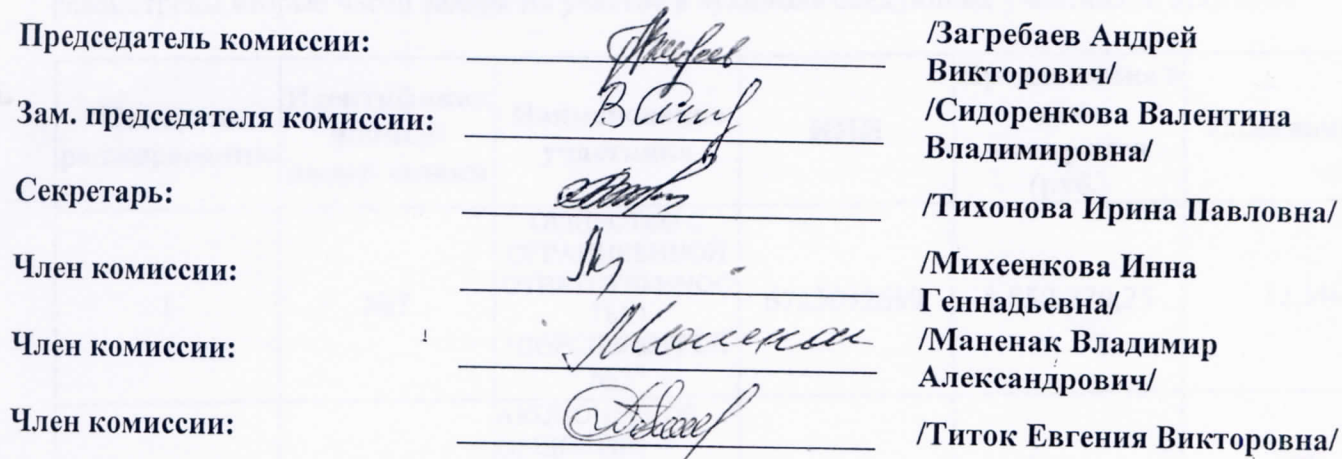 Председатель комиссии: /Загребаев Андрей
Викторович/
Зам. председателя комиссии: /Сидоренкова Валентина
Владимировна/
Секретарь: /Тихонова Ирина Павловна/
Член комиссии: /Михеенкова Инна
Геннадьевна/
Член комиссии: /Маненак Владимир
Александрович/
Член комиссии: /Титок Евгения Викторовна/